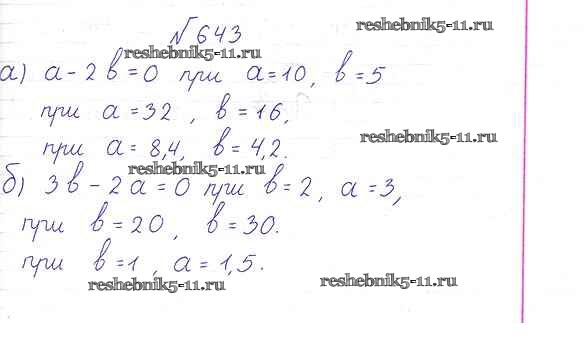 №643
reshebnik5-11.ru
reshebnik5-11.ru
а) a - 2b = 0 при a = 10, b = 5
при a = 32, b = 16,
reshebnik5-11.ru
при a = 8,4, b = 4,2.
reshebnik5-11.ru
б) 3b - 2a = 0 при b = 2, a = 3,
при b = 20, b = 30.
при b = 1, a = 1,5.
reshebnik5-11.ru
reshebnik5-11.ru